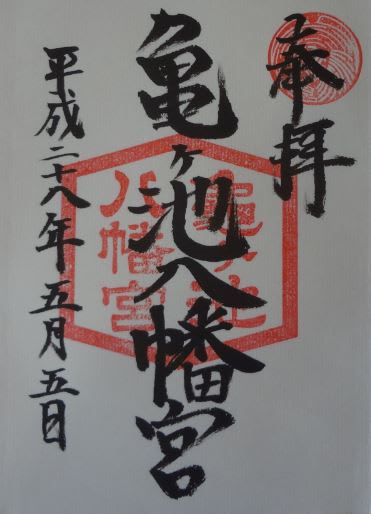 奉拝
亀ヶ池八幡宮
亀ヶ池
八幡宮
平成二十八年五月五日